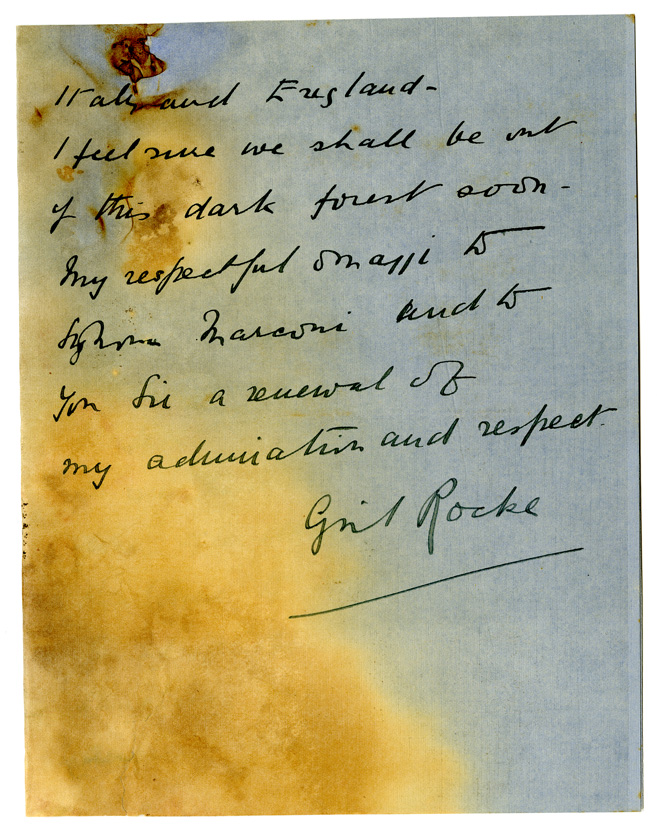 Italy and England -
I feel sure we shall be out
of this dark forest soon -
My respectful omaggi to
Signora Marconi and to
You Sir a renewal of
my admiration and respect.
Rocke